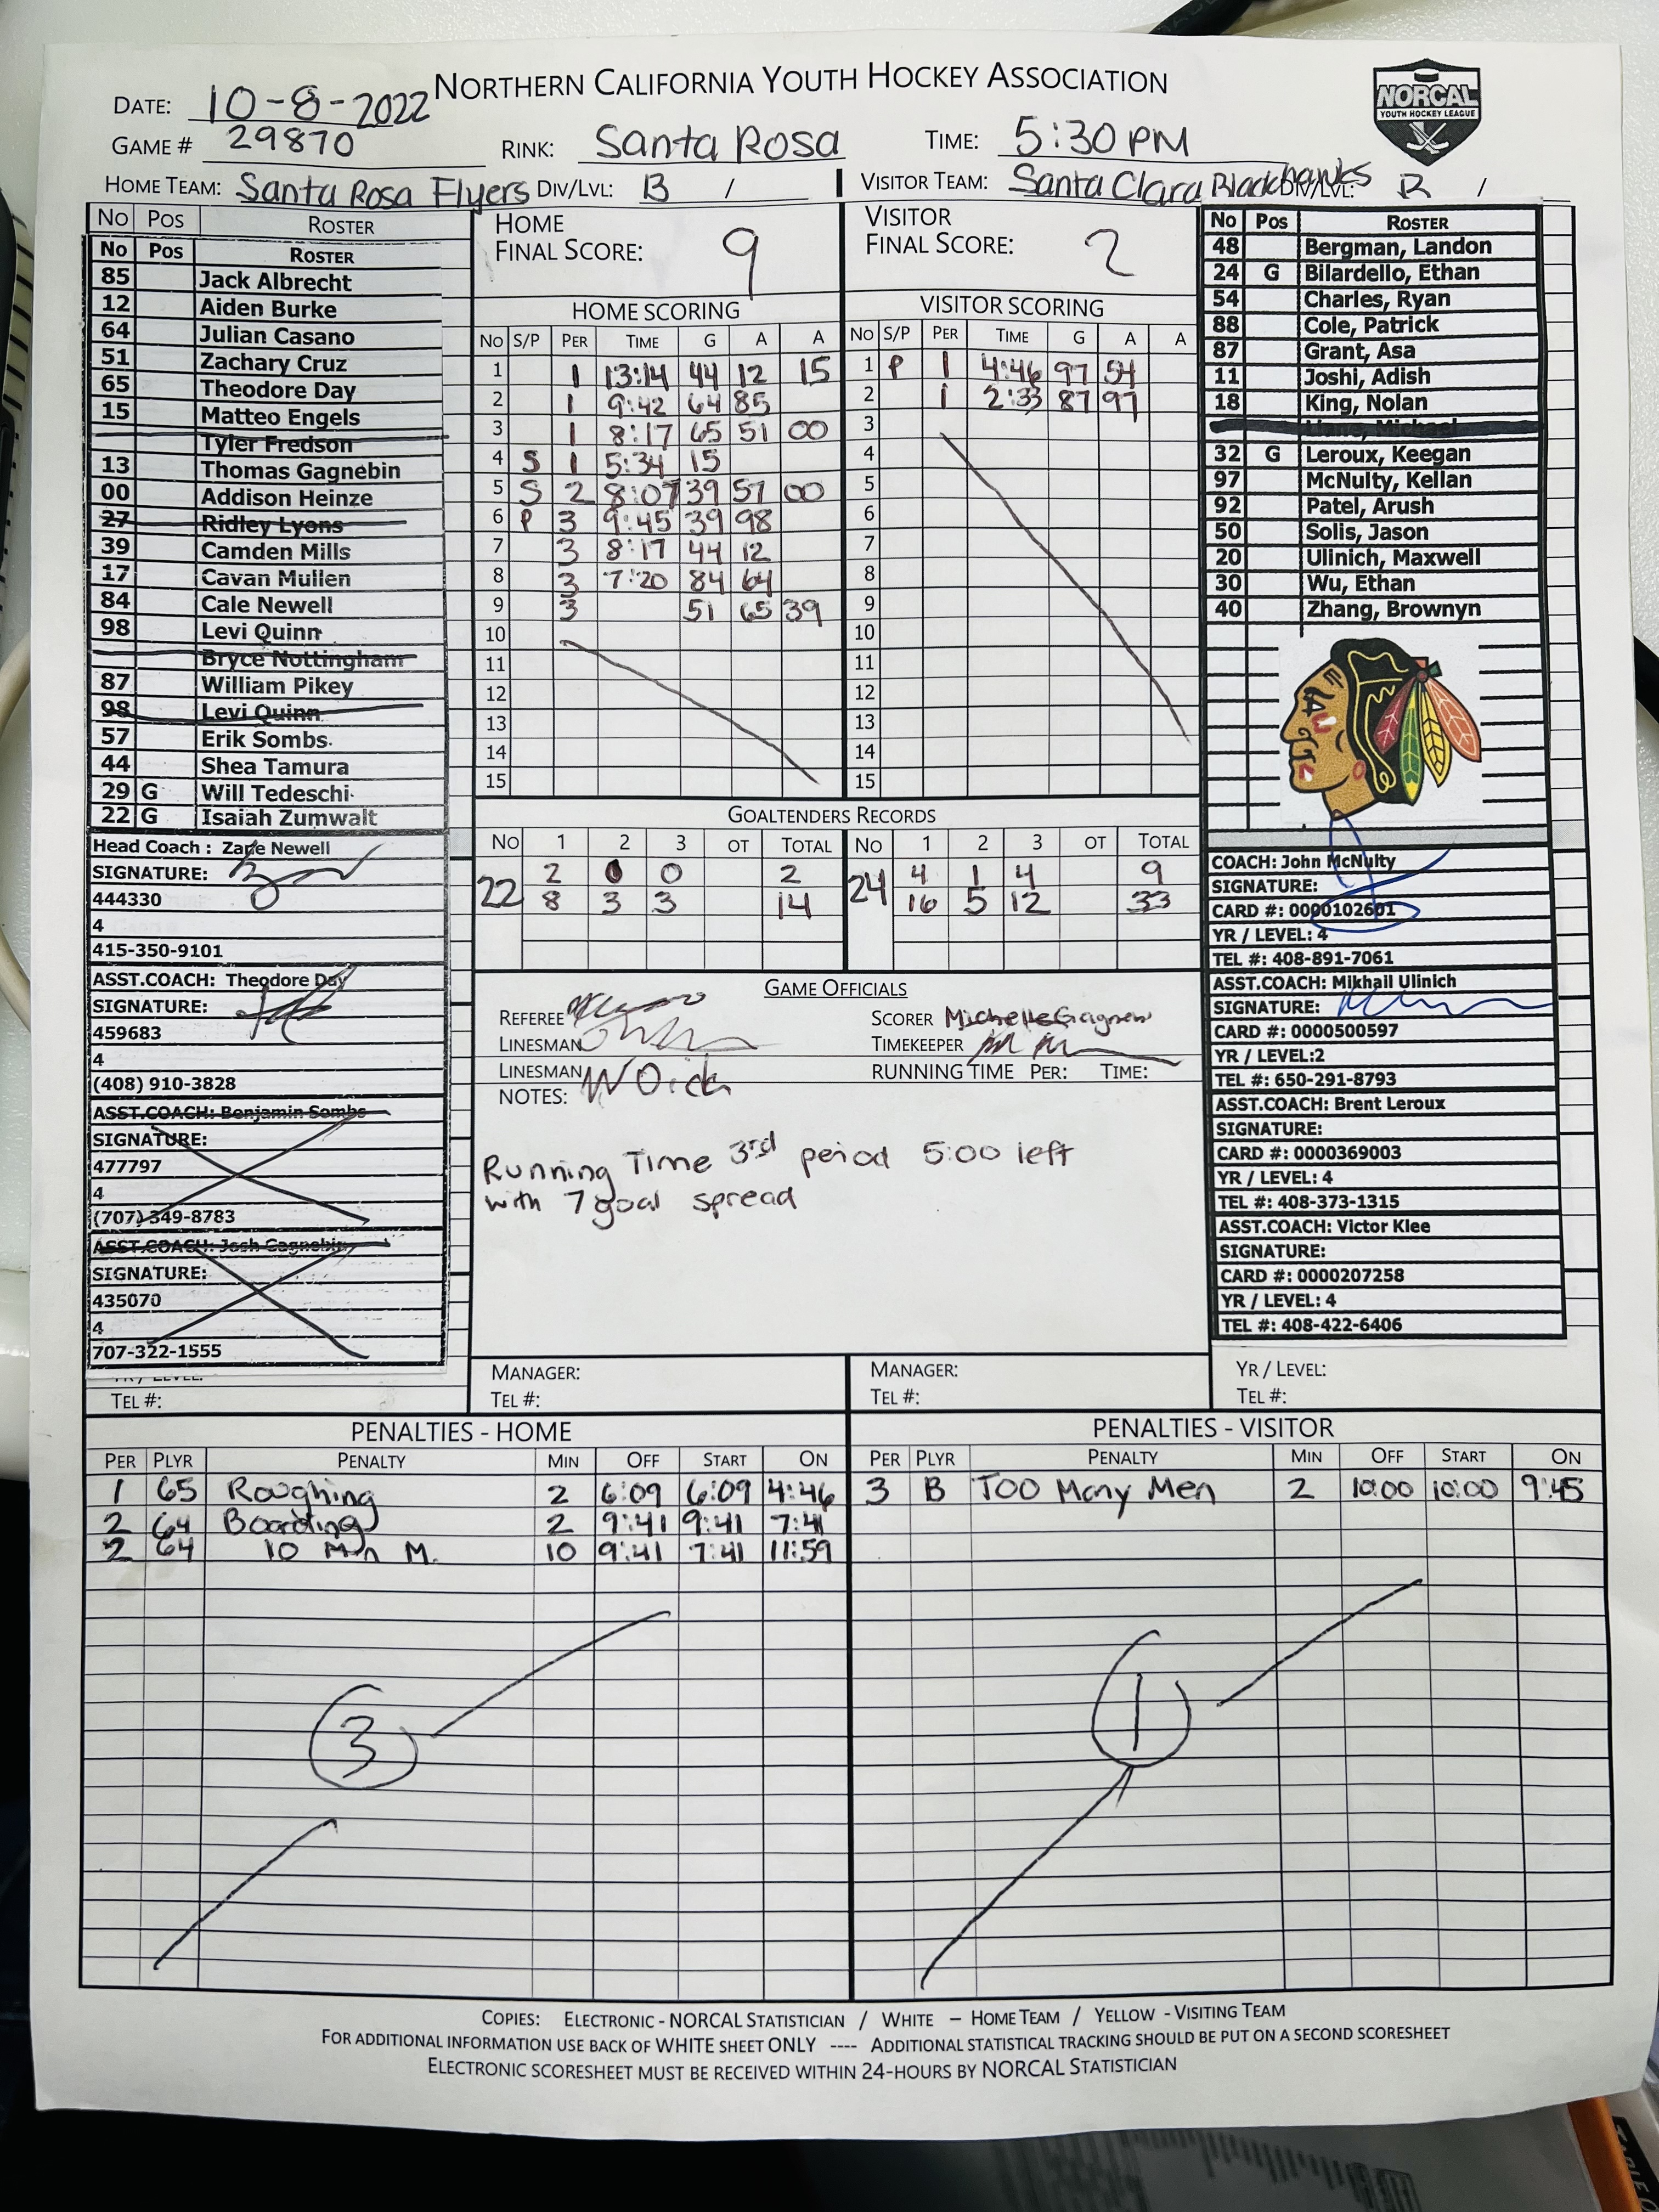 NORTHERN CALIFORNIA YOUTH HOCKEY ASSOCIATION
NORCAL
YOUTH HOCKEY LEAGUE
DATE: 10-8-2022
GAME # 29870 RINK: Santa Rosa TIME: 5:30 PM
HOME TEAM: Santa Rosa Flyers DIV/LVL: B / VISITOR TEAM: Santa Clara Blackhawks DIV/LVL: B /
NO POS ROSTER
No Pos ROSTER
85 Jack Albrecht
12 Aiden Burke
64 Julian Casano
51 Zachary Cruz
65 Theodore Day
15 Matteo Engels
Tyler Fredson
13 Thomas Gagnebin
00 Addison Heinze
27 Ridley Lyons
39 Camden Mills
17 Cavan Mullen
84 Cale Newell
98 Levi Quinn
Bryce Nottingham
87 William Pikey
98 Levi Quinn
57 Erik Sombs
44 Shea Tamura
29 G Will Tedeschi
22 G Isaiah Zumwalt
Head Coach : Zane Newell
SIGNATURE:
444330
4
415-350-9101
ASST.COACH: Theodore Day
SIGNATURE:
459683
4
(408) 910-3828
ASST.COACH: Benjamin Sombs
SIGNATURE:
477797
4
(707) 349-8783
ASST.COACH: Josh Gagnebin
SIGNATURE:
435070
4
707-322-1555
TEL #:
HOME
FINAL SCORE: 9
HOME SCORING
NO S/P PER TIME G A A
1 1 13:14 44 12 15
2 1 9:42 64 85
3 1 8:17 65 51 00
4 S 1 5:34 15
5 S 2 8:07 39 57 00
6 P 3 9:45 39 98
7 3 8:17 44 12
8 3 7:20 84 64
9 3 51 65 39
10
11
12
13
14
15
VISITOR
FINAL SCORE: 2
VISITOR SCORING
NO S/P PER TIME G A A
1 P 1 4:46 97 54
2 1 2:33 87 97
3
4
5
6
7
8
9
10
11
12
13
14
15
GOALTENDERS RECORDS
NO 1 2 3 OT TOTAL NO 1 2 3 OT TOTAL
22 2 0 0 2 24 4 1 4 9
8 3 3 14 16 5 12 33
GAME OFFICIALS
REFEREE SCORER
LINESMAN TIMEKEEPER
LINESMAN RUNNING TIME PER: TIME:
NOTES:
Running Time 3rd period 5:00 left
with 7 goal spread
MANAGER: MANAGER:
TEL #: TEL #:
No Pos ROSTER
48 Bergman, Landon
24 G Bilardello, Ethan
54 Charles, Ryan
88 Cole, Patrick
87 Grant, Asa
11 Joshi, Adish
18 King, Nolan
32 G Leroux, Keegan
97 McNulty, Kellan
92 Patel, Arush
50 Solis, Jason
20 Ulinich, Maxwell
30 Wu, Ethan
40 Zhang, Brownyn
COACH: John McNulty
SIGNATURE:
CARD #: 0000102601
YR / LEVEL: 4
TEL #: 408-891-7061
ASST.COACH: Mikhail Ulinich
SIGNATURE:
CARD #: 0000500597
YR / LEVEL:2
TEL #: 650-291-8793
ASST.COACH: Brent Leroux
SIGNATURE:
CARD #: 0000369003
YR / LEVEL: 4
TEL #: 408-373-1315
ASST.COACH: Victor Klee
SIGNATURE:
CARD #: 0000207258
YR / LEVEL: 4
TEL #: 408-422-6406
YR / LEVEL:
TEL #:
PENALTIES - HOME
PER PLYR PENALTY MIN OFF START ON
1 65 Roughing 2 6:09 6:09 4:46
2 64 Boarding 2 9:41 9:41 7:41
2 64 10 Min M. 10 9:41 7:41 11:59
3
PENALTIES - VISITOR
PER PLYR PENALTY MIN OFF START ON
3 B Too Many Men 2 10:00 10:00 9:45
1
COPIES: ELECTRONIC - NORCAL STATISTICIAN / WHITE – HOME TEAM / YELLOW - VISITING TEAM
FOR ADDITIONAL INFORMATION USE BACK OF WHITE SHEET ONLY ---- ADDITIONAL STATISTICAL TRACKING SHOULD BE PUT ON A SECOND SCORESHEET
ELECTRONIC SCORESHEET MUST BE RECEIVED WITHIN 24-HOURS BY NORCAL STATISTICIAN